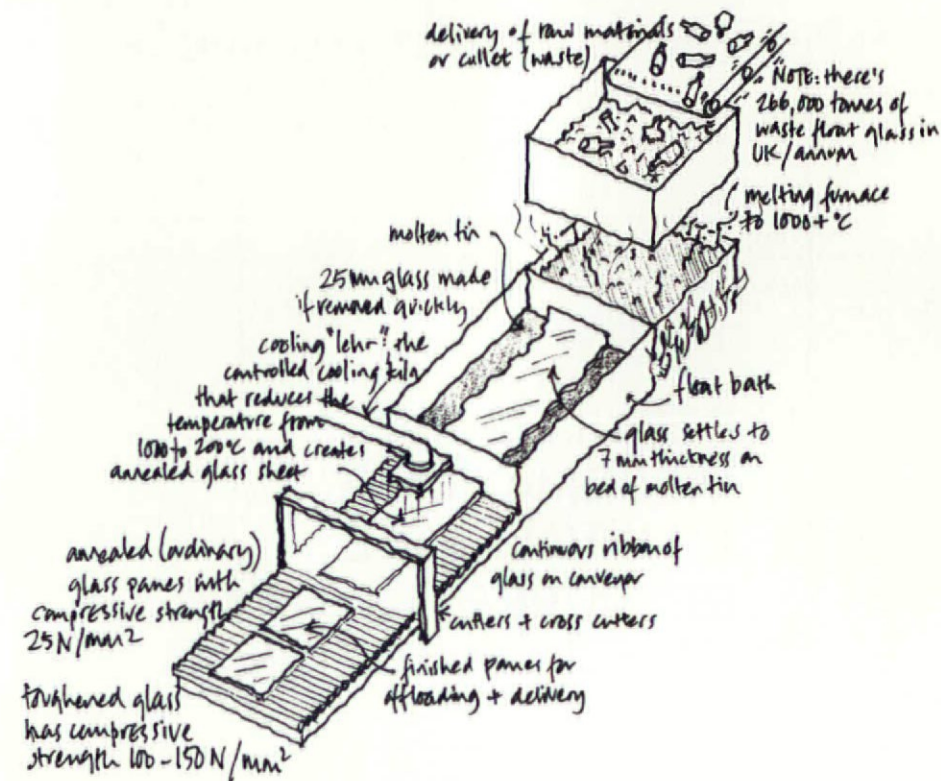 delivery of raw materials
or cullet (waste)
NOTE: there's
266,000 tonnes of
waste float glass in
UK/annum
melting furnace
to 1000+°C
molten tin
25mm glass made
if removed quickly
cooling "lehr": the
controlled cooling kiln
that reduces the
temperature from
1000 to 200°C and creates
annealed glass sheet
float bath
glass settles to
7mm thickness on
bed of molten tin
annealed (ordinary)
glass panes with
compressive strength
25N/mm²
continuous ribbon of
glass on conveyor
cutters + cross cutters
finished panes for
offloading + delivery
toughened glass
has compressive
strength 100-150N/mm²